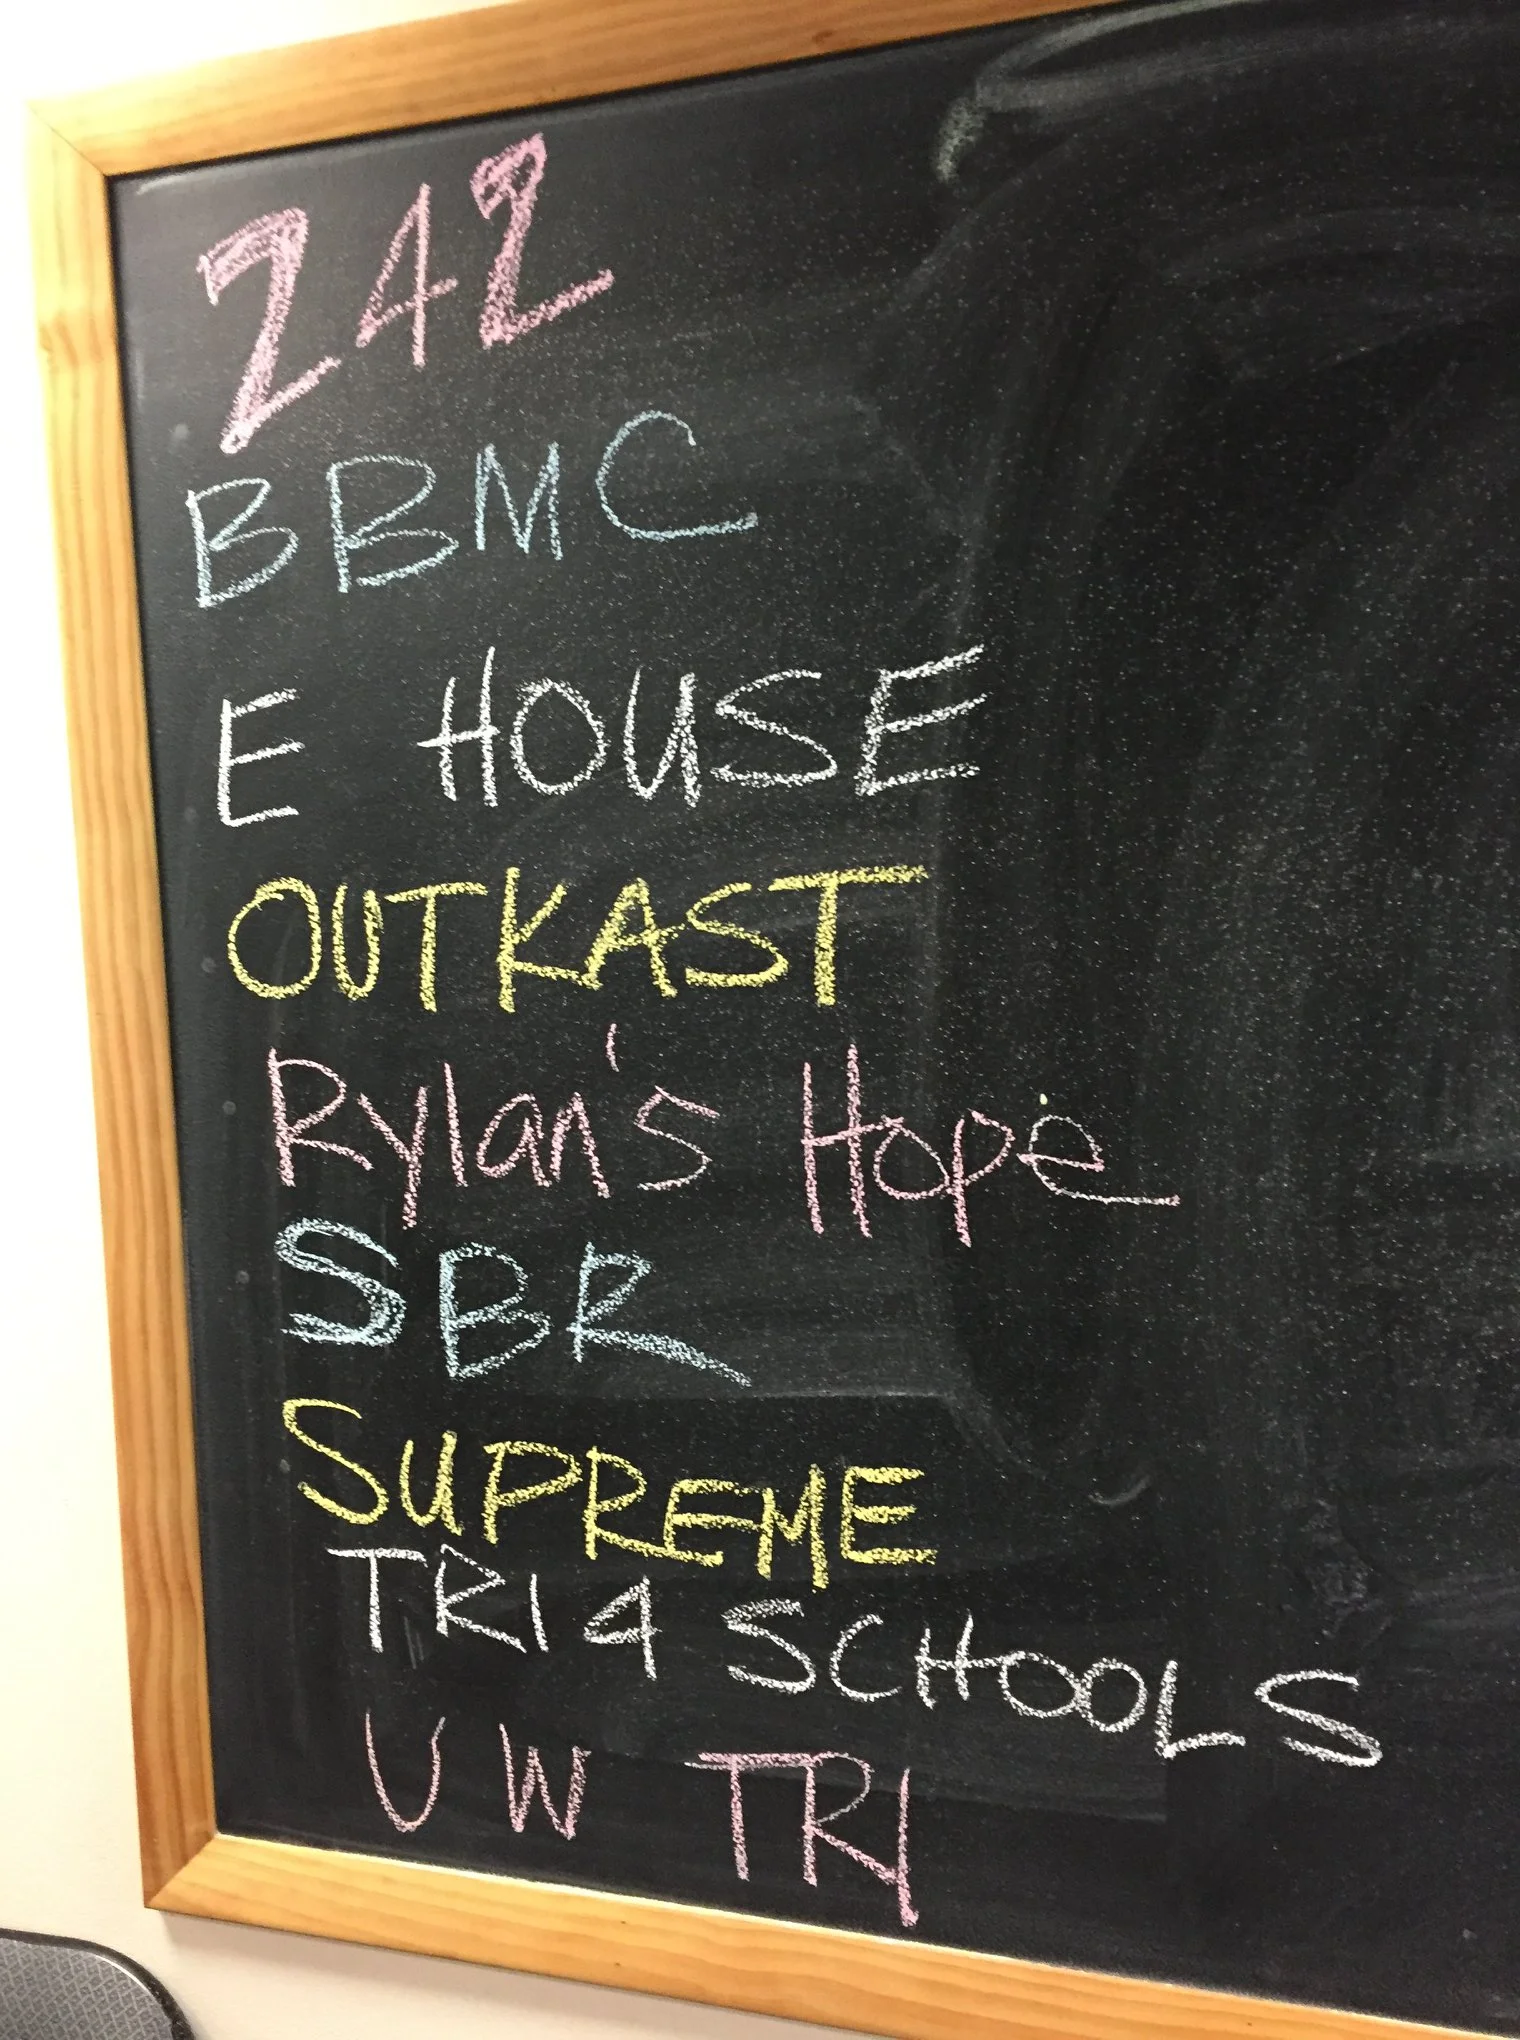 242
BBMC
E HOUSE
OUTKAST
Rylan's Hope
SBR
SUPREME
TRI 4 SCHOOLS
UW TRI